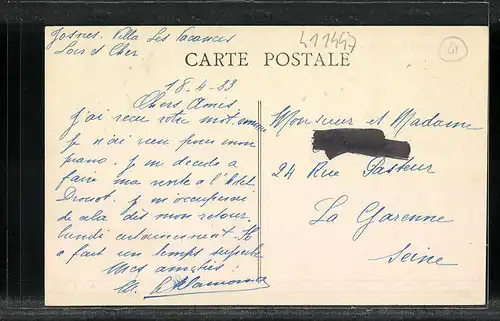 Josnes. Villa Les Vacances
Loir et Cher
411447
41
CARTE POSTALE
18-4-33
Chers Amis
J'ai reçu votre mot comme
je n'ai rien pour mon
piano. Je me décide a
faire ma vente a l'Hotel
Drouot. Je m'occuperai
de cela dès mon retour
lundi certainement. Il
a fait un temps superbe
Mes amitiés :
Monsieur et Madame
24 Rue Pasteur
La Garenne
Seine